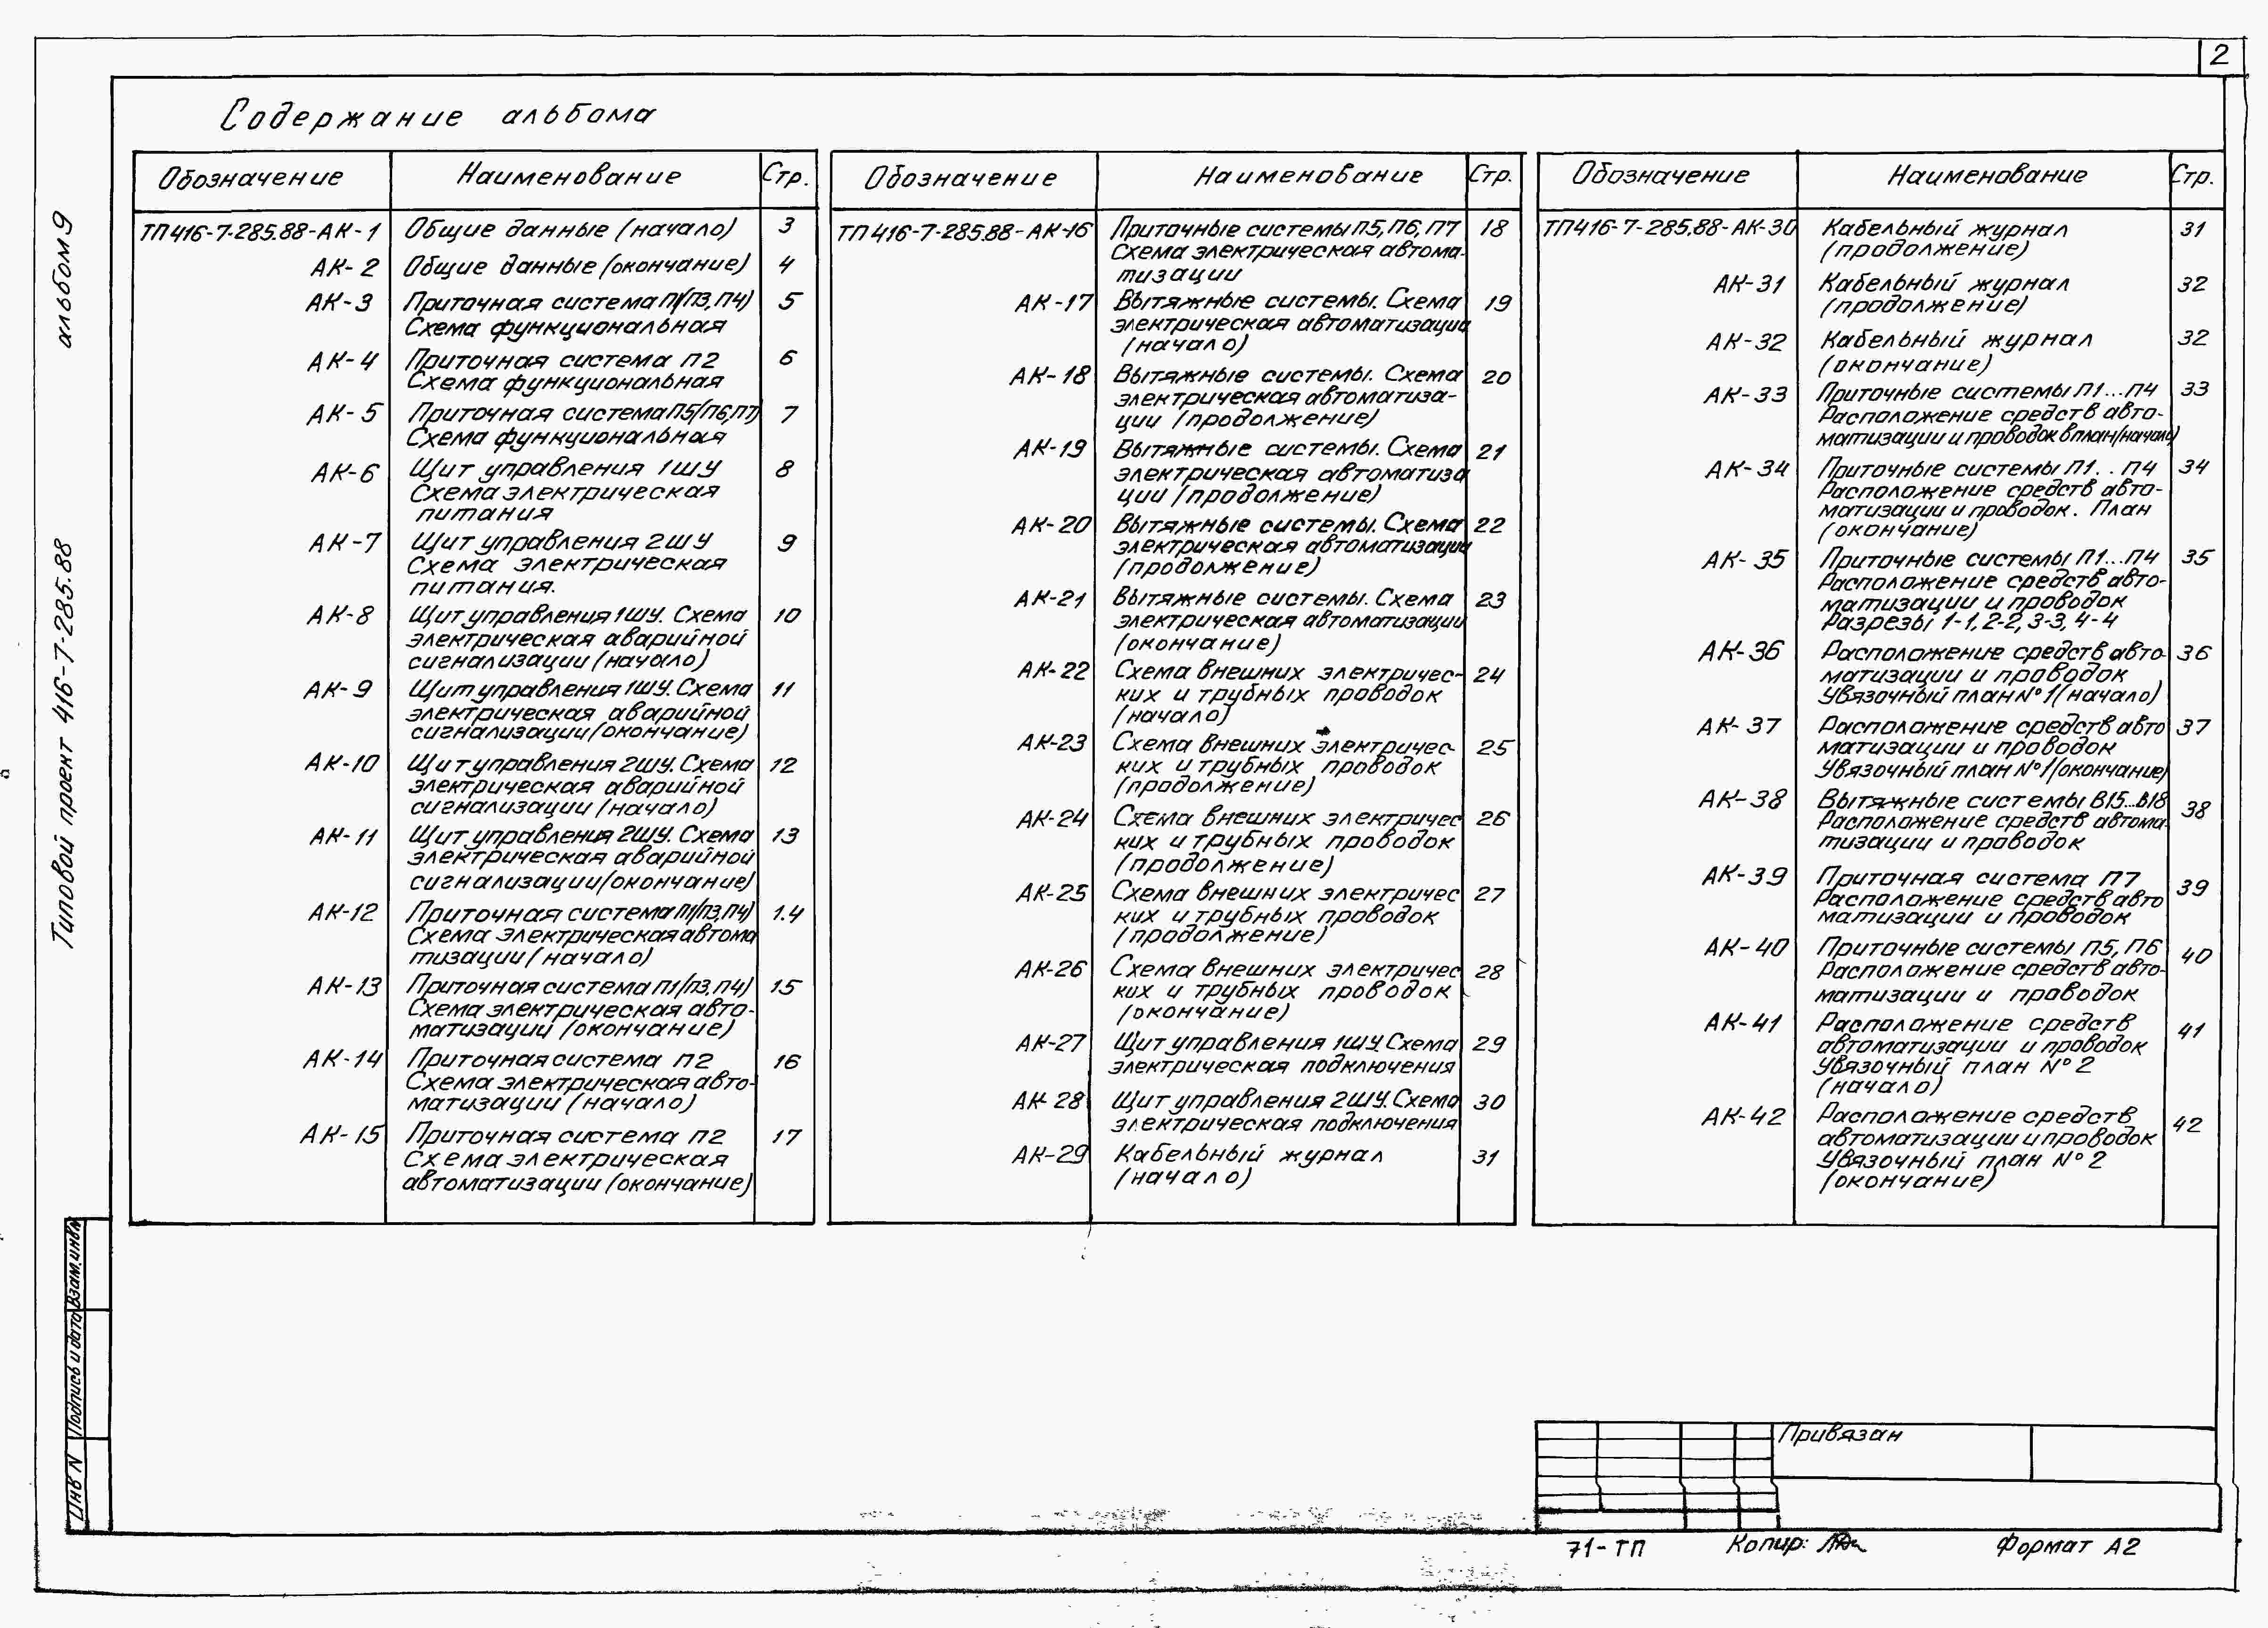 2
Содержание альбома
альбом 9
Типовой проект 416-7-285.88
Обозначение Наименование Стр.
ТП416-7-285.88-АК-1 Общие данные (начало) 3
АК-2 Общие данные (окончание) 4
АК-3 Приточная система П1(П3, П4) 5
Схема функциональная
АК-4 Приточная система П2 6
Схема функциональная
АК-5 Приточная система П5(П6,П7) 7
Схема функциональная
АК-6 Щит управления 1ШУ 8
Схема электрическая
питания
АК-7 Щит управления 2ШУ 9
Схема электрическая
питания.
АК-8 Щит управления 1ШУ. Схема 10
электрическая аварийной
сигнализации (начало)
АК-9 Щит управления 1ШУ. Схема 11
электрическая аварийной
сигнализации (окончание)
АК-10 Щит управления 2ШУ. Схема 12
электрическая аварийной
сигнализации (начало)
АК-11 Щит управления 2ШУ. Схема 13
электрическая аварийной
сигнализации (окончание)
АК-12 Приточная система П1(П3,П4) 1.4
Схема электрическая автома
тизации (начало)
АК-13 Приточная система П1(П3, П4) 15
Схема электрическая авто-
матизации (окончание)
АК-14 Приточная система П2 16
Схема электрическая авто-
матизации (начало)
АК-15 Приточная система П2 17
Схема электрическая
автоматизации (окончание)
Обозначение Наименование Стр.
ТП 416-7-285.88-АК-16 Приточные системы П5, П6, П7 18
Схема электрическая автома-
тизации
АК-17 Вытяжные системы. Схема 19
электрическая автоматизации
(начало)
АК-18 Вытяжные системы. Схема 20
электрическая автоматиза-
ции (продолжение)
АК-19 Вытяжные системы. Схема 21
электрическая автоматиза
ции (продолжение)
АК-20 Вытяжные системы. Схема 22
электрическая автоматизации
(продолжение)
АК-21 Вытяжные системы. Схема 23
электрическая автоматизации
(окончание)
АК-22 Схема внешних электричес- 24
ких и трубных проводок
(начало)
АК-23 Схема внешних электричес- 25
ких и трубных проводок
(продолжение)
АК-24 Схема внешних электричес 26
ких и трубных проводок
(продолжение)
АК-25 Схема внешних электричес 27
ких и трубных проводок
(продолжение)
АК-26 Схема внешних электричес 28
ких и трубных проводок
(окончание)
АК-27 Щит управления 1ШУ. Схема 29
электрическая подключения
АК-28 Щит управления 2ШУ. Схема 30
электрическая подключения
АК-29 Кабельный журнал 31
(начало)
Обозначение Наименование Стр.
ТП416-7-285.88-АК-30 Кабельный журнал 31
(продолжение)
АК-31 Кабельный журнал 32
(продолжение)
АК-32 Кабельный журнал 32
(окончание)
АК-33 Приточные системы П1...П4 33
Расположение средств авто-
матизации и проводок в план (начало)
АК-34 Приточные системы П1. . П4 34
Расположение средств авто-
матизации и проводок. План
(окончание)
АК-35 Приточные системы П1...П4 35
Расположение средств авто-
матизации и проводок
Разрезы 1-1, 2-2, 3-3, 4-4
АК-36 Расположение средств авто- 36
матизации и проводок
Увязочный план №1 (начало)
АК-37 Расположение средств авто 37
матизации и проводок
Увязочный план №1 (окончание)
АК-38 Вытяжные системы В15...В18 38
Расположение средств автома-
тизации и проводок
АК-39 Приточная система П7 39
Расположение средств авто
матизации и проводок
АК-40 Приточные системы П5, П6 40
Расположение средств авто-
матизации и проводок
АК-41 Расположение средств 41
автоматизации и проводок
Увязочный план №2
(начало)
АК-42 Расположение средств 42
автоматизации и проводок
Увязочный план №2
(окончание)
Взам.инв.N
Подпись и дата
Инв N
Привязан
71-ТП Копир: Формат А2